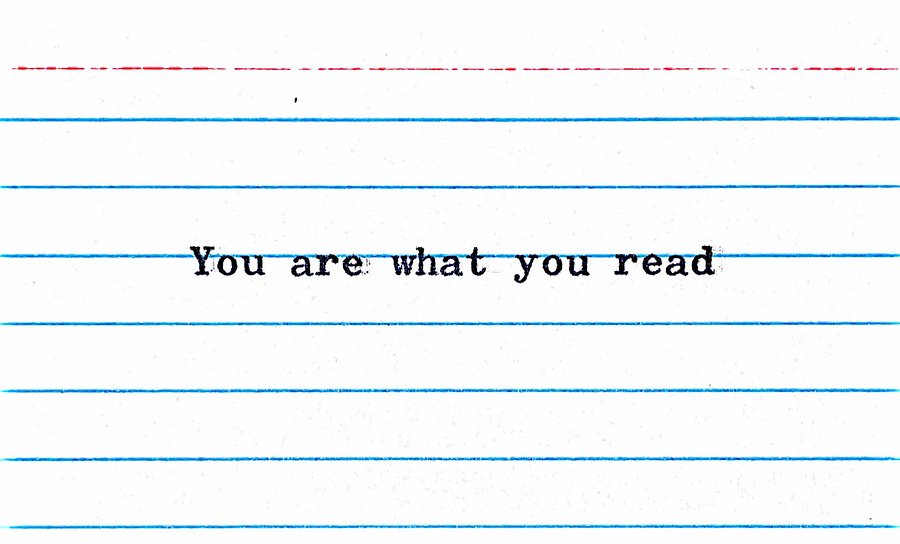 You are what you read